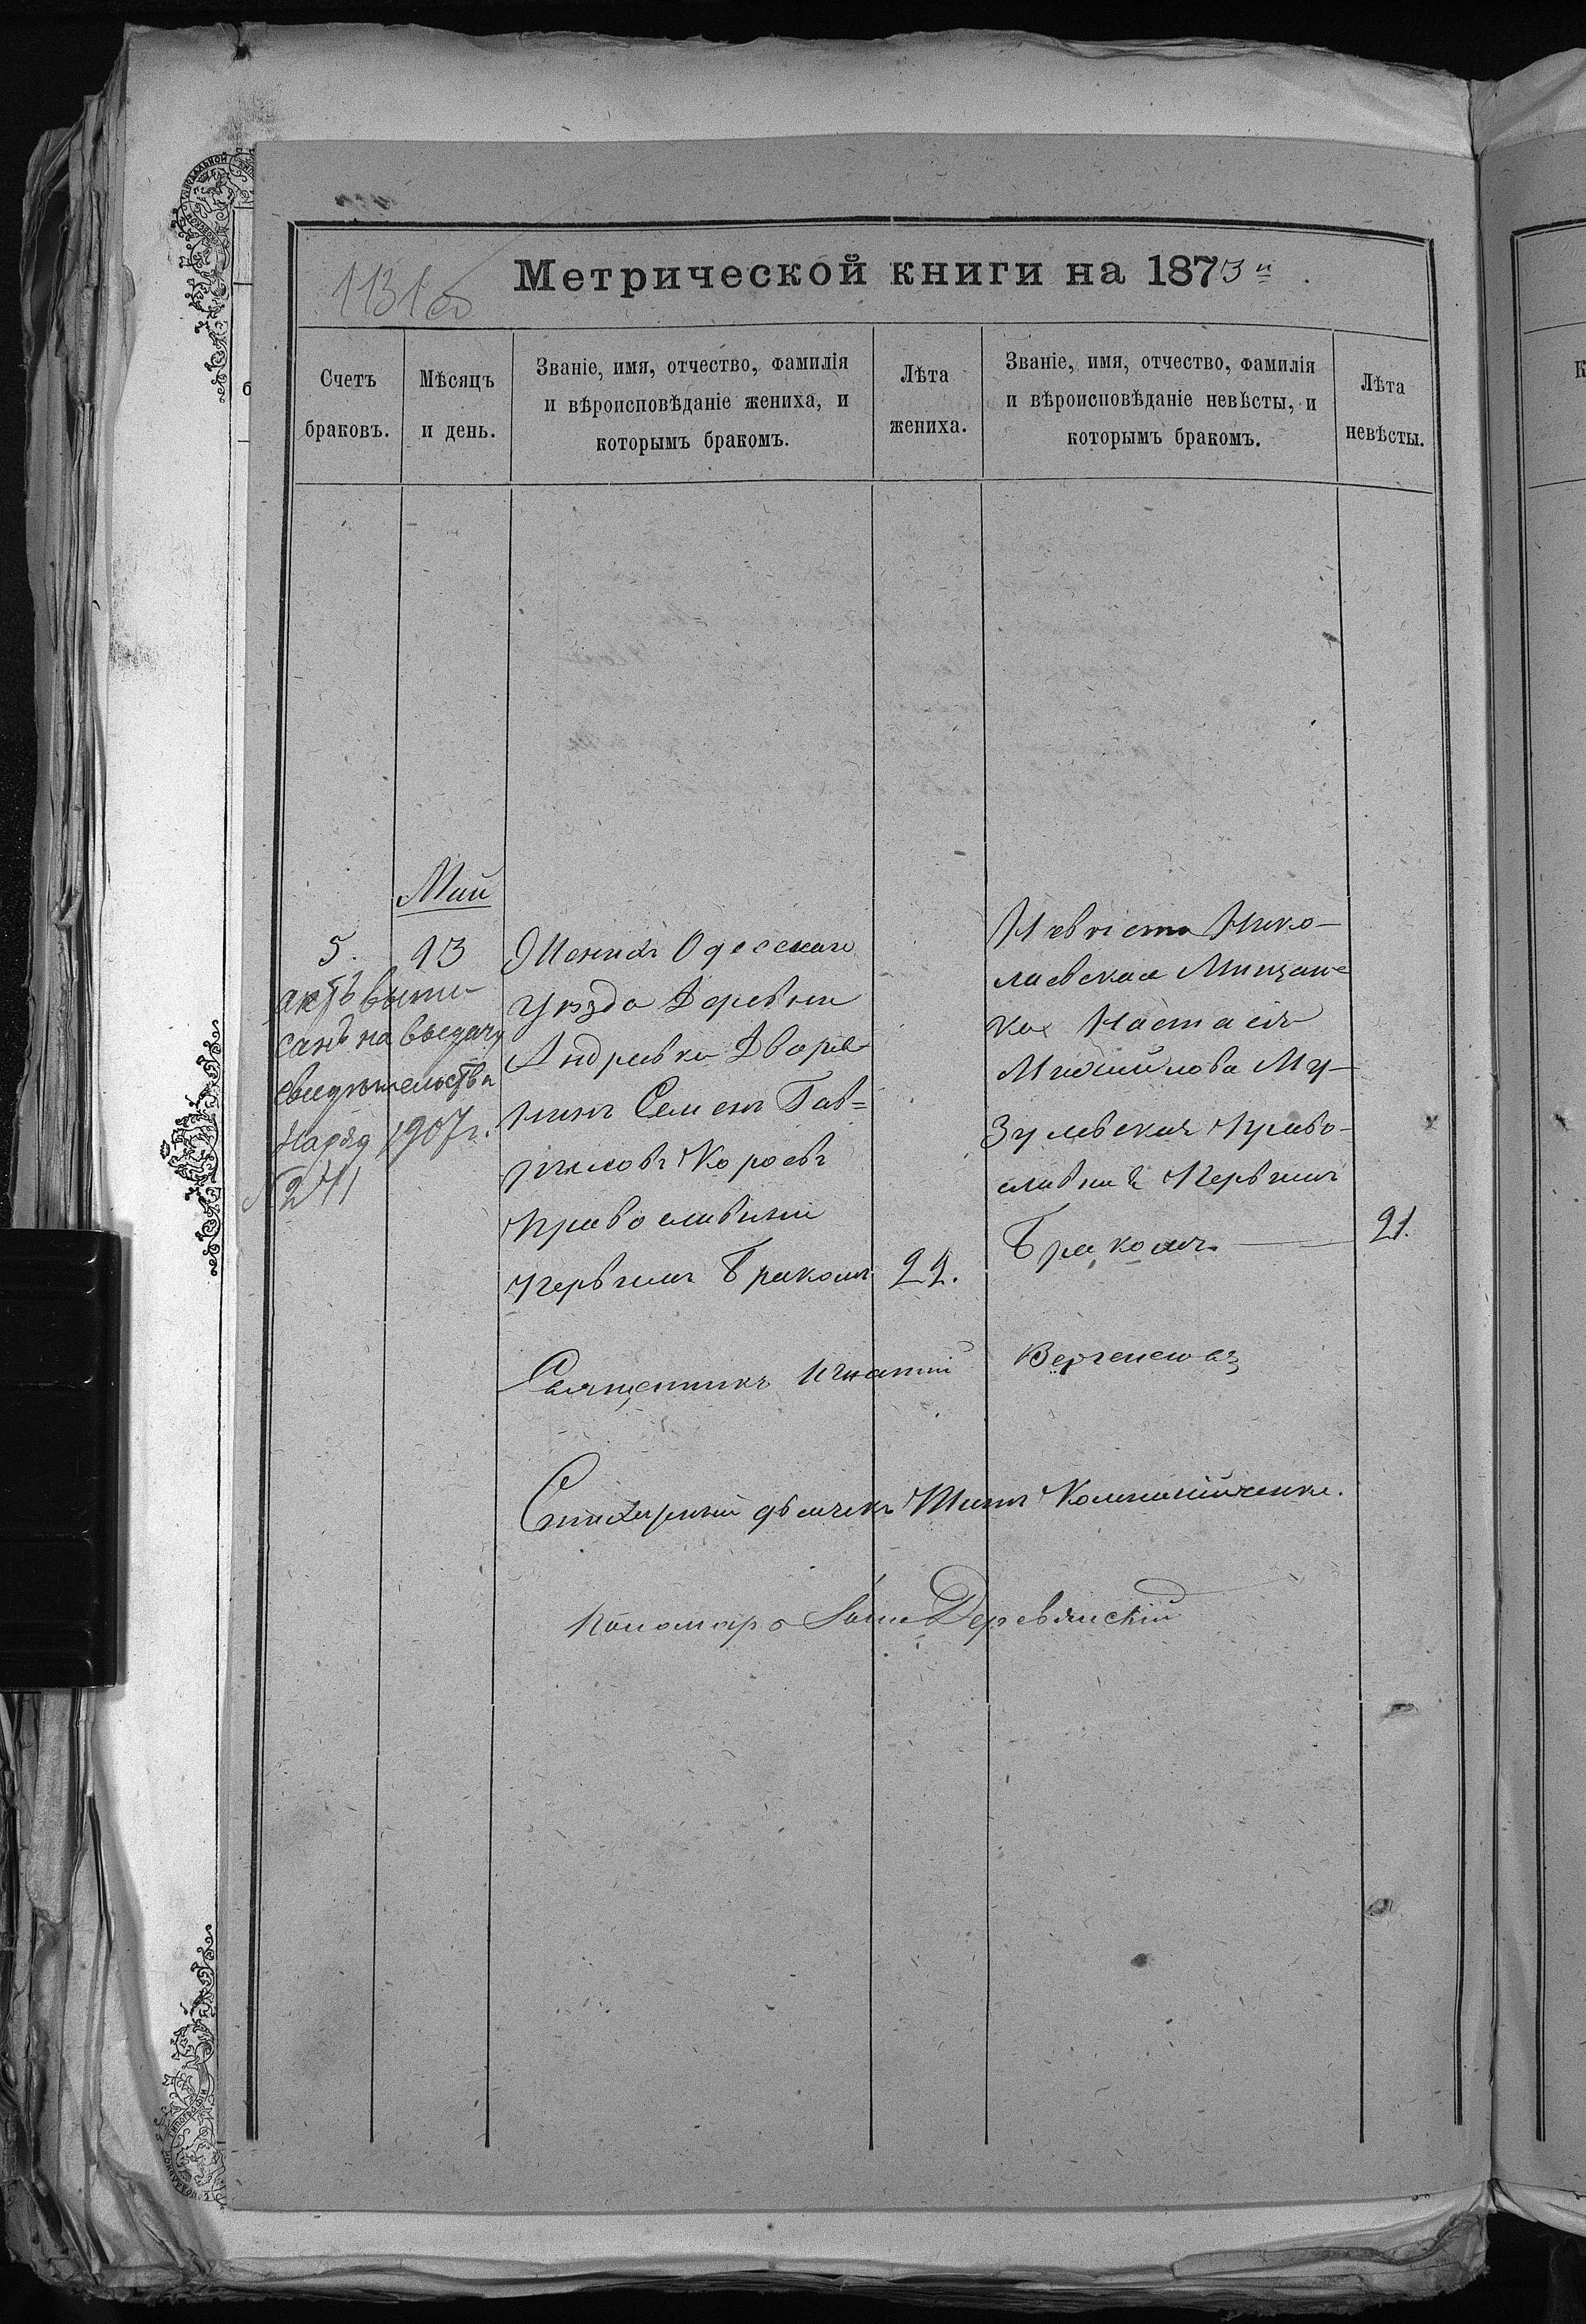 1131об
Метрической книги на 1873й
Счетъ браковъ.
Мѣсяцъ и день.
Званіе, имя, отчество, фамилія
и вѣроисповѣданіе жениха, и
которымъ бракомъ.
Лѣта жениха.
Званіе, имя, отчество, фамилія
и вѣроисповѣданіе невѣсты, и
которымъ бракомъ.
Лѣта невѣсты.
Май
5.
13
актъ выпи-
санъ на выдачу
свидѣтельства
Наряд 1907 г.
Женихъ Одесскаго
уѣзда деревни
Андреевки Дворя
нинъ Семенъ Гав=
риловъ Короевъ
Православный
первымъ бракомъ
22.
Невѣста Нико-
лаевская Мищанс
кая Настасія
Михайлова Му-
зулевская Право-
славная Первымъ
Бракомъ.
21.
Священникъ Игнатій
Стихарный дьячекъ
Пономарь Деревянскій